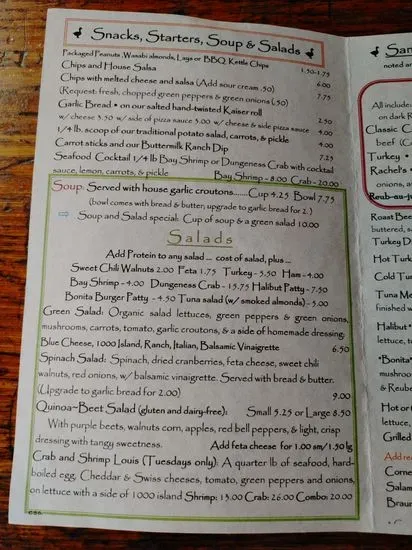 Snacks, Starters, Soup & Salads
Packaged Peanuts, Wasabi almonds, Lays or BBQ Kettle Chips 1.50-1.75
Chips and House Salsa 6.00
Chips with melted cheese and salsa (Add sour cream .50) 7.75
(Request: fresh, chopped green peppers & green onions (.50)
Garlic Bread • on our salted hand-twisted Kaiser roll 2.50
w/ cheese 3.50 w/ side of pizza sauce 3.00 w/ cheese & side pizza sauce 4.00
1/4 lb. scoop of our traditional potato salad, carrots, & pickle 4.00
Carrot sticks and our Buttermilk Ranch Dip 7.25
Seafood Cocktail 1/4 lb Bay Shrimp or Dungeness Crab with cocktail
sauce, lemon, carrots, & pickle Bay Shrimp - 8.00 Crab - 20.00
Soup: Served with house garlic croutons.......Cup 4.25 Bowl 7.75
(bowl comes with bread & butter; upgrade to garlic bread for 2.)
⇨ Soup and Salad special: Cup of soup & a green salad 10.00
Salads
Add Protein to any salad ... cost of salad, plus ...
Sweet Chili Walnuts 2.00 Feta 1.75 Turkey - 5.50 Ham - 4.00
Bay Shrimp - 4.00 Dungeness Crab - 15.75 Halibut Patty - 7.50
Bonita Burger Patty - 4.50 Tuna salad (w/ smoked almonds) - 5.00
Green Salad: Organic salad lettuces, green peppers & green onions,
mushrooms, carrots, tomato, garlic croutons, & a side of homemade dressing:
Blue Cheese, 1000 Island, Ranch, Italian, Balsamic Vinaigrette 6.50
Spinach Salad: Spinach, dried cranberries, feta cheese, sweet chili
walnuts, red onions, w/ balsamic vinaigrette. Served with bread & butter.
(Upgrade to garlic bread for 2.00) 9.00
Quinoa-Beet Salad (gluten and dairy-free): Small 5.25 or Large 8.50
With purple beets, walnuts corn, apples, red bell peppers, & light, crisp
dressing with tangy sweetness. Add feta cheese for 1.00 sm/1.50 lg
Crab and Shrimp Louis (Tuesdays only): A quarter lb of seafood, hard-
boiled egg, Cheddar & Swiss cheeses, tomato, green peppers and onions,
on lettuce with a side of 1000 island Shrimp: 13.00 Crab: 26.00 Combo: 20.00
San
noted ar
All includes
on dark R
Classic C
beef (C
Turkey •
Rachel's •
onions, a
Roub-au-ju
Roast Bee
buttered, s
Turkey D
Hot Turk
Cold Tur
Tuna Me
finished w
Halibut •
lettuce, t
"Bonita"
mushroo
& Reube
Hot or
lettuce,
Grilled
onions,
Add rec
Corne
Salam
Braun